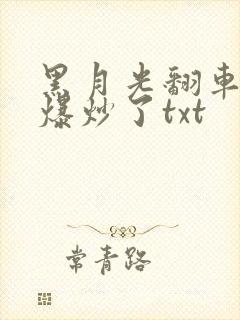 黑月光翻車
爆炒了txt
常青路